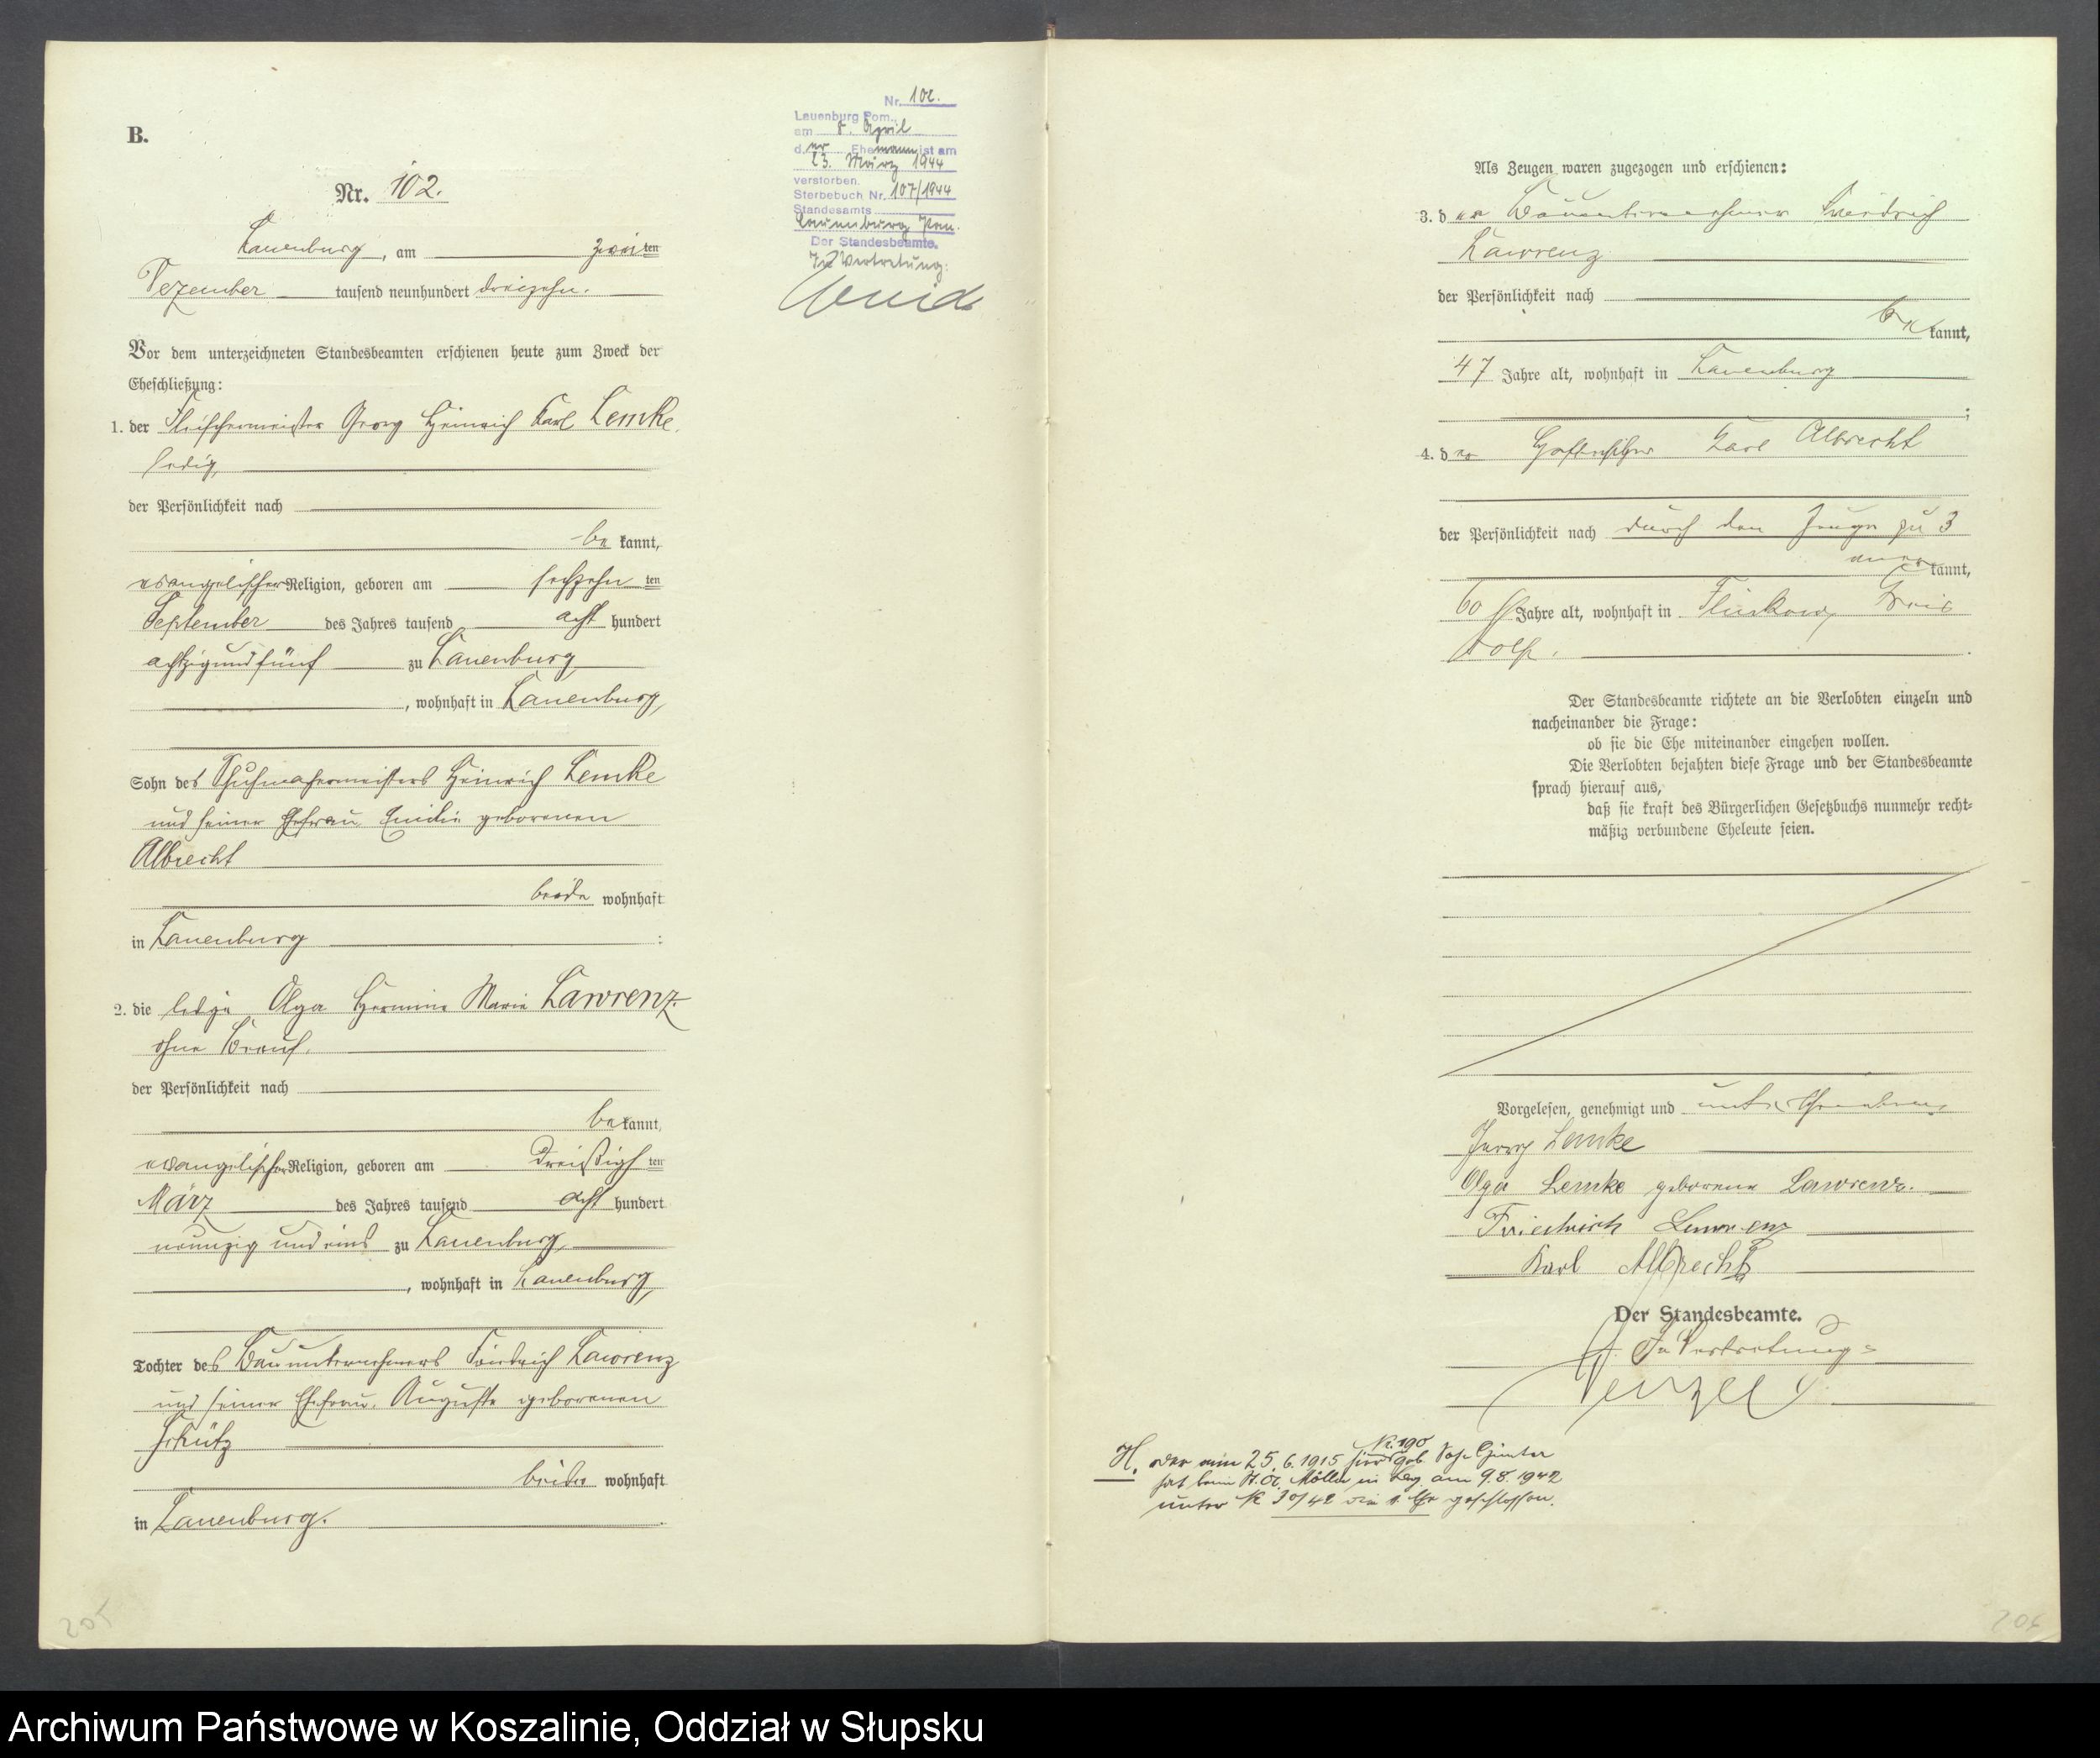 B.
Nr. 102.
Lauenburg, am zweiten
Dezember tausend neunhundert dreizehn.
Vor dem unterzeichneten Standesbeamten erschienen heute zum Zweck der
Eheschließung:
1. der Fleischermeister Georg Heinrich Karl Lemke,
ledig,
der Persönlichkeit nach
be kannt,
evangelischer Religion, geboren am sechzehn ten
September des Jahres tausend acht hundert
achtzig und fünf zu Lauenburg
, wohnhaft in Lauenburg,
Sohn des Schuhmachermeisters Heinrich Lemke
und seiner Ehefrau Emilie geborenen
Albrecht
beide wohnhaft
in Lauenburg ;
2. die ledige Olga Hermine Marie Lawrenz.
ohne Beruf.
der Persönlichkeit nach
be kannt,
evangelischer Religion, geboren am dreißigs ten
März des Jahres tausend acht hundert
neunzig und eins zu Lauenburg,
, wohnhaft in Lauenburg,
Tochter des Bauunternehmers Friedrich Lawrenz
und seiner Ehefrau Auguste geborenen
Schütz
beide wohnhaft
in Lauenburg.
205
Nr. 102.
Lauenburg Pom.,
am 8. April
d. er Ehemann ist am
23. März 1944
verstorben.
Sterbebuch Nr. 107/1944
Standesamts
Lauenburg Pom.
Der Standesbeamte.
In Vertretung:
Als Zeugen waren zugezogen und erschienen:
3. der Bauunternehmer Friedrich
Lawrenz
der Persönlichkeit nach
be kannt,
47 Jahre alt, wohnhaft in Lauenburg
;
4. der Hofbesitzer Karl Albrecht
der Persönlichkeit nach durch den Zeugen zu 3
aner kannt,
60 Jahre alt, wohnhaft in Kreis
Stolp.
Der Standesbeamte richtete an die Verlobten einzeln und
nacheinander die Frage:
ob sie die Ehe miteinander eingehen wollen.
Die Verlobten bejahten diese Frage und der Standesbeamte
sprach hierauf aus,
daß sie kraft des Bürgerlichen Gesetzbuchs nunmehr recht-
mäßig verbundene Eheleute seien.
Vorgelesen, genehmigt und unterschrieben,
Georg Lemke
Olga Lemke geborene Lawrenz.
Friedrich Lawrenz
Karl Albrecht
Der Standesbeamte.
In Vertretung:
Wenzel
Nr. 190
H. am 25.6.1915 hier geb. Sohn Günter
hat beim St. A. in am 9.8.1942
unter Nr 30/42 die 1. Ehe geschlossen.
206
Archiwum Państwowe w Koszalinie, Oddział w Słupsku